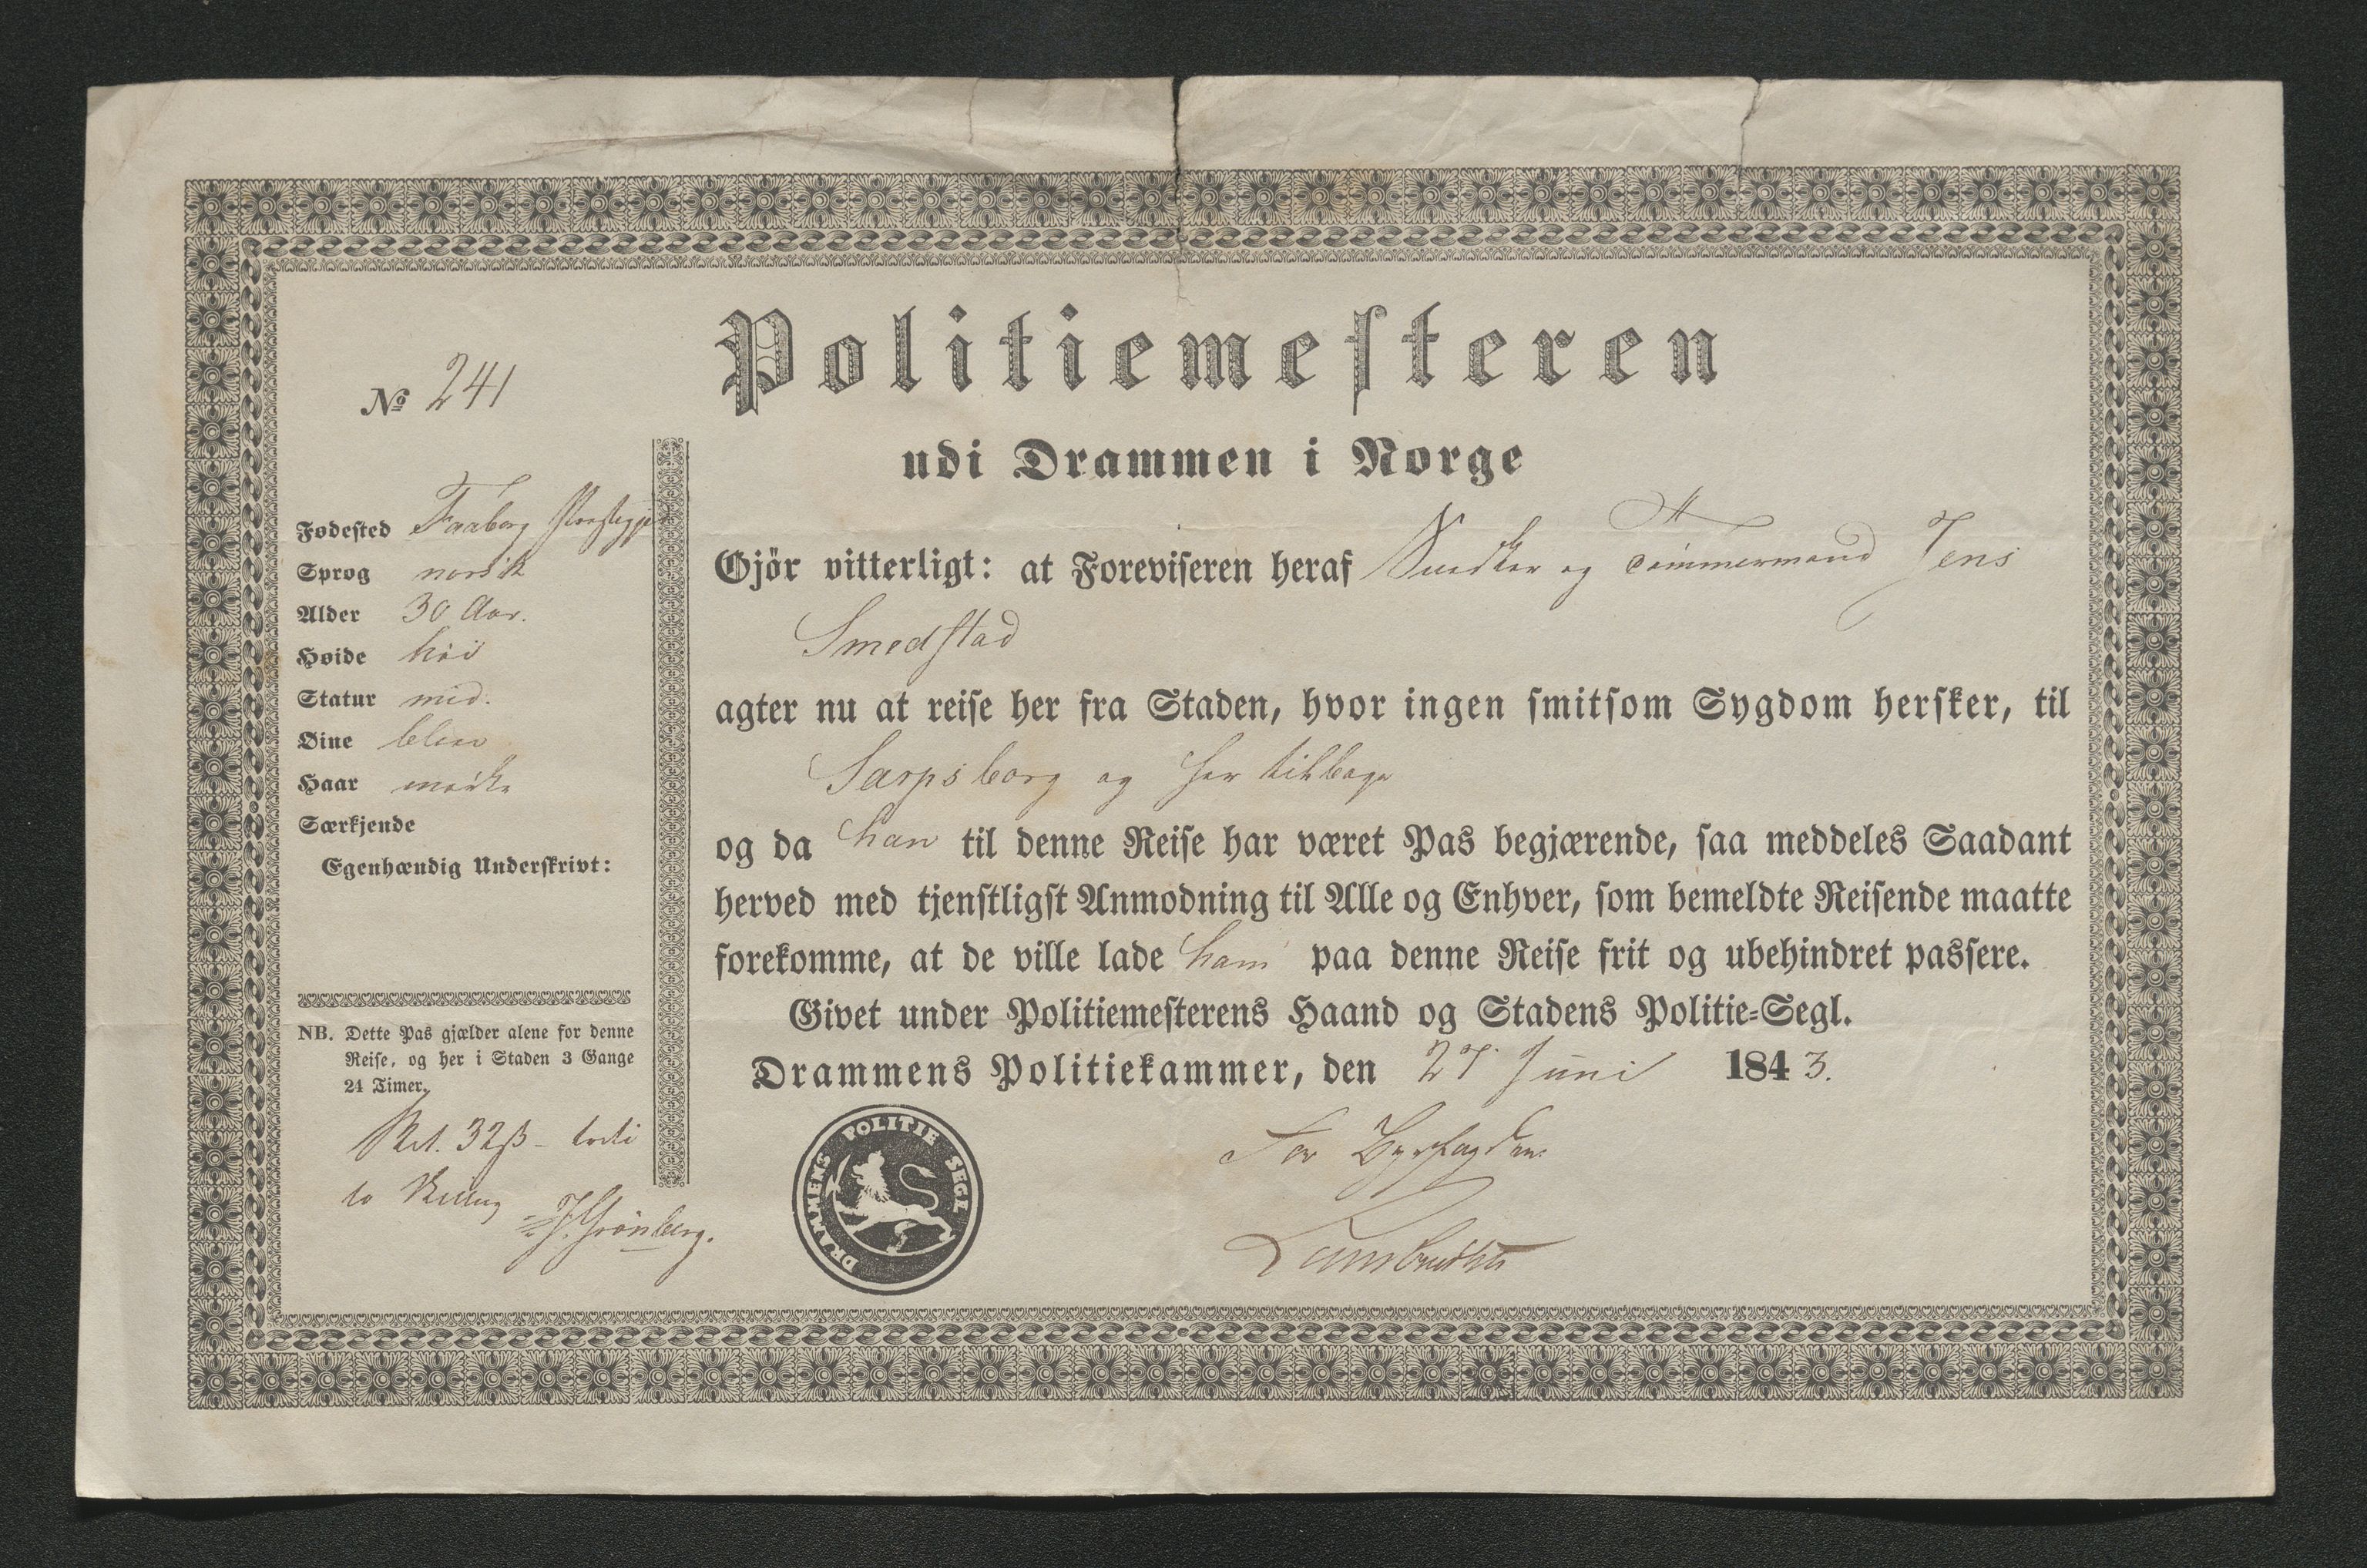 Politiemesteren
udi Drammen i Norge
No 241
Fødested Faaberg Præstegjæld
Sprog norsk
Alder 30 Aar.
Høide høi
Statur mid.
Øine blaa
Haar mørke
Særkjende
Egenhændig Underskrivt:
NB. Dette Pas gjælder alene for denne
Reise, og her i Staden 3 Gange
24 Timer.
Bet. 32 ß - treti
to Skilling
J. Grønberg.
Gjör vitterligt: at Foreviseren heraf Snedker og Tømmermand Jens
Smedstad
agter nu at reise her fra Staden, hvor ingen smitsom Sygdom hersker, til
Sarpsborg og her tilbage
og da han til denne Reise har været Pas begjærende, saa meddeles Saadant
herved med tjenstligst Anmodning til Alle og Enhver, som bemeldte Reisende maatte
forekomme, at de ville lade ham paa denne Reise frit og ubehindret passere.
Givet under Politiemesterens Haand og Stadens Politie-Segl.
Drammens Politiekammer, den 27 Juni 1843.
For Byefogden
Lambrechts
DRAMMENS POLITIE SEGL